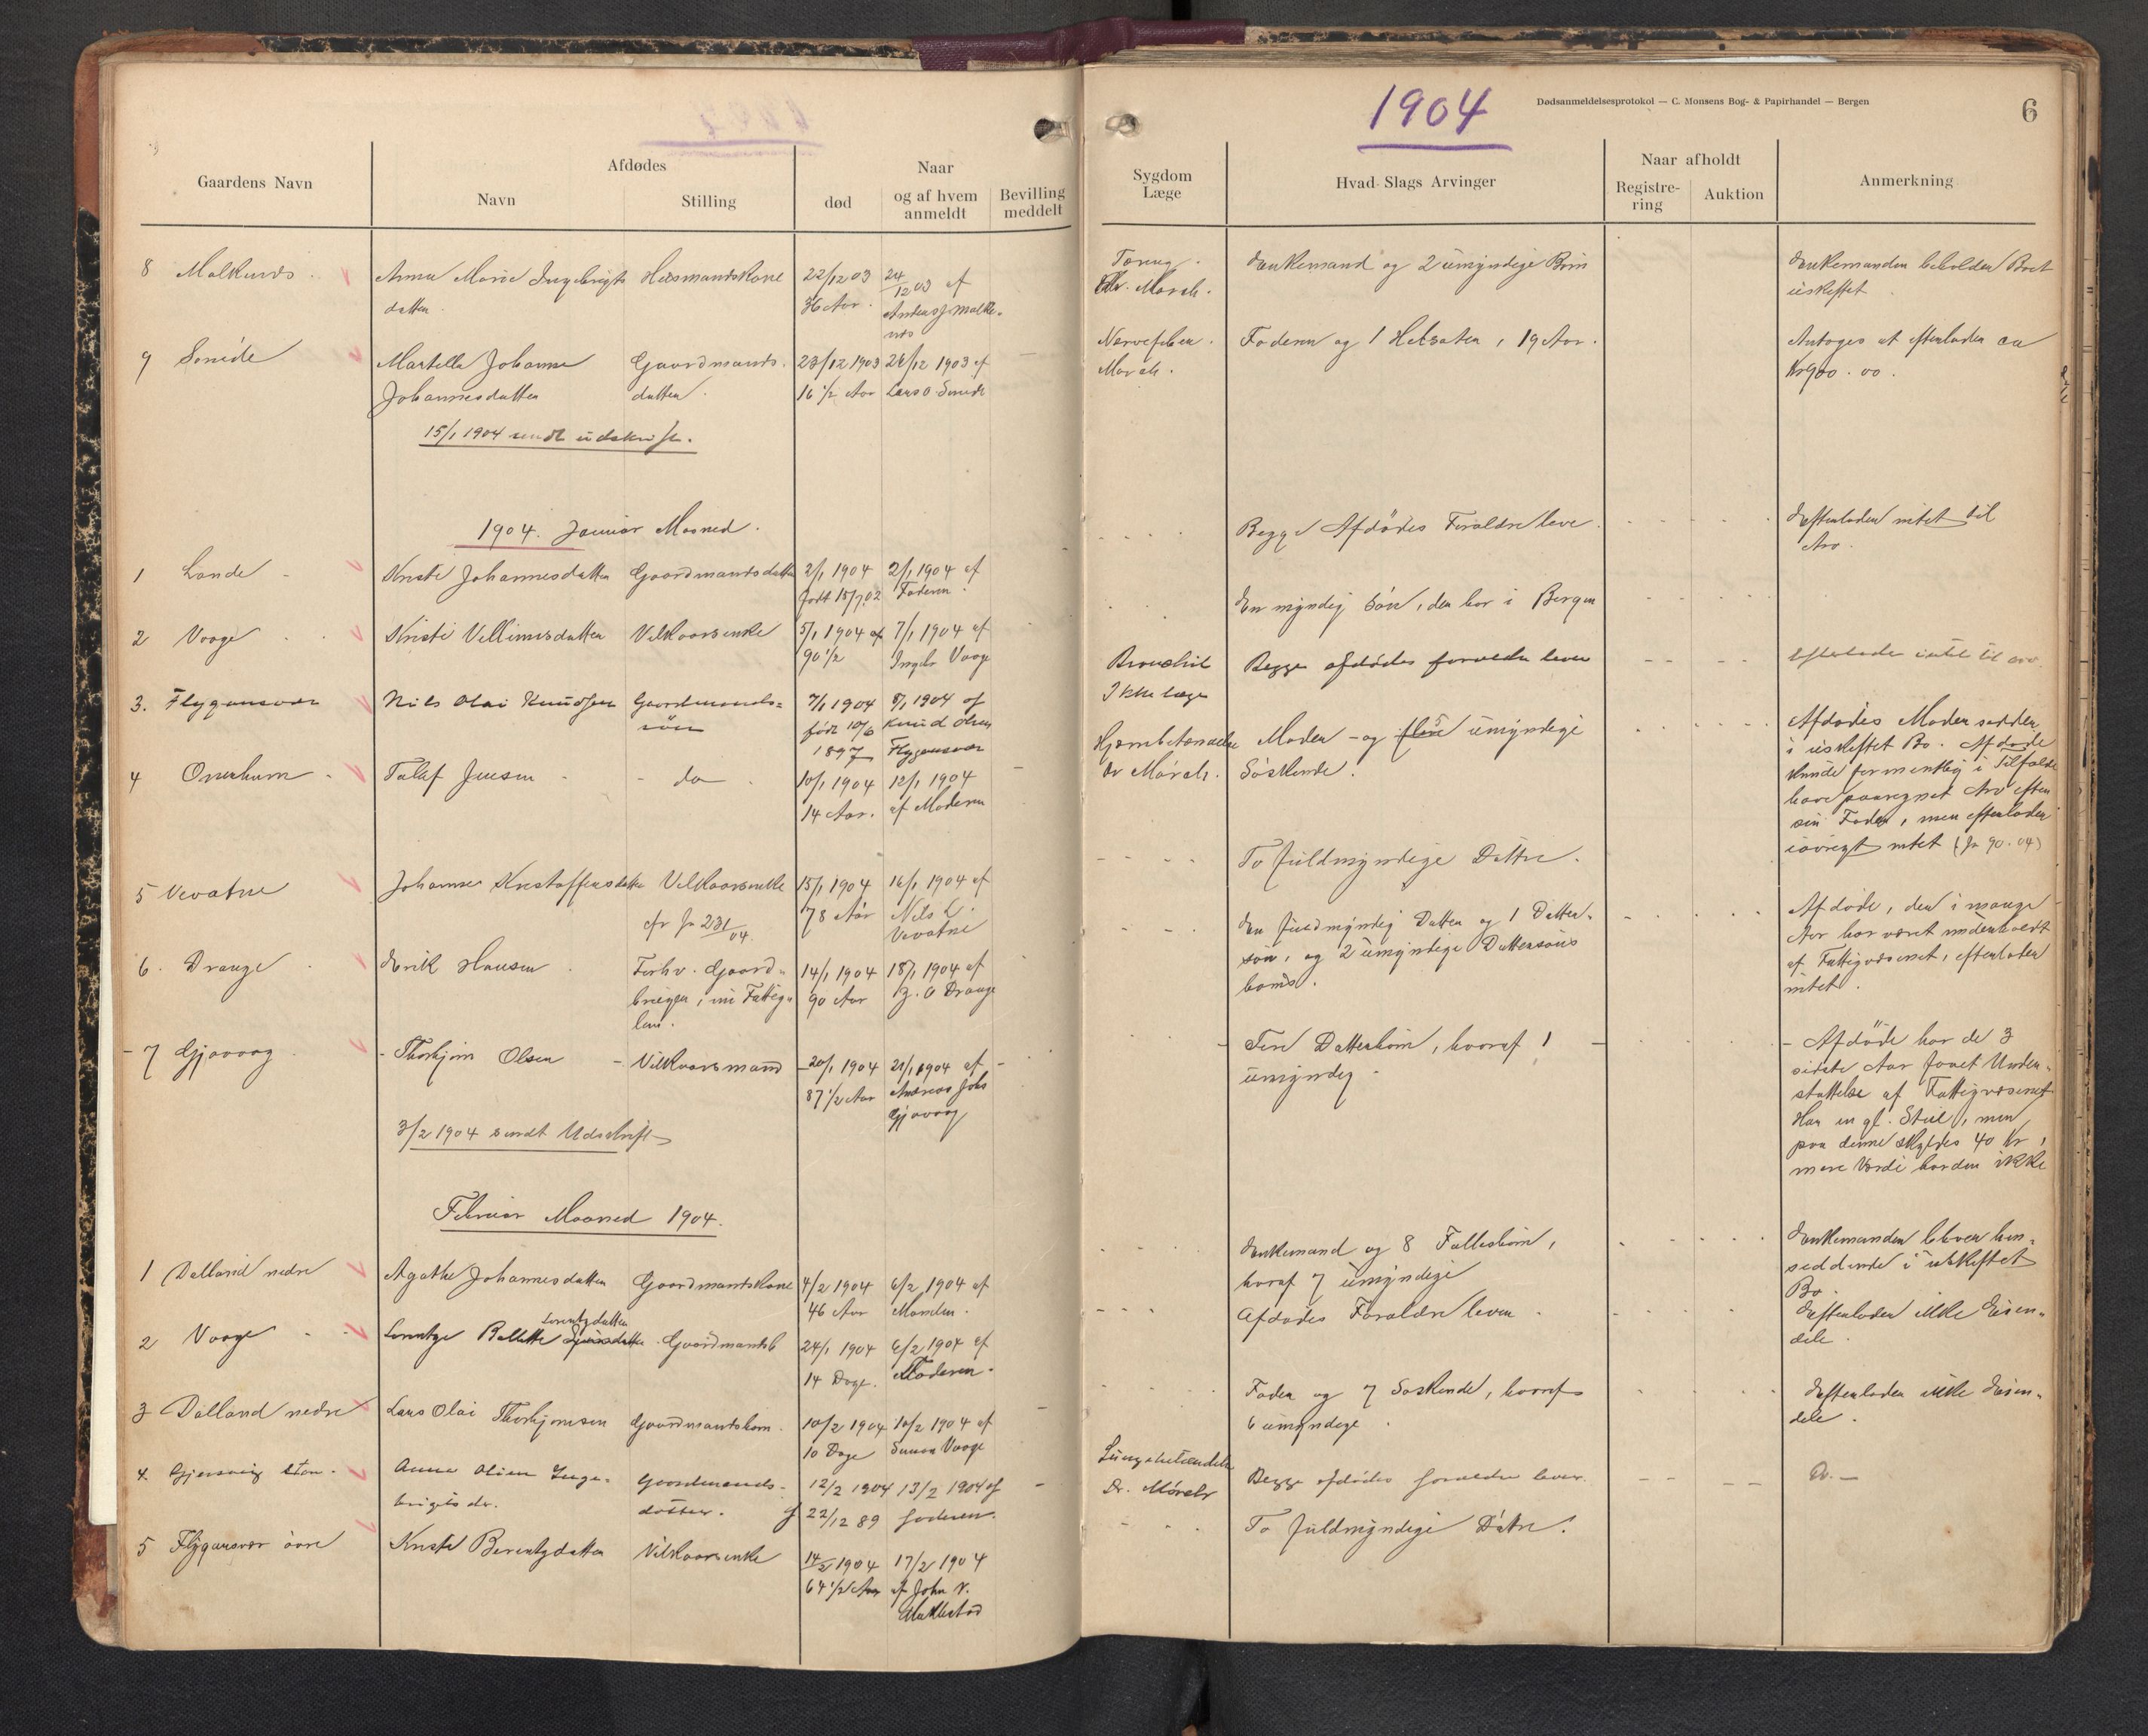 1904
Dødsanmeldelsesprotokol — C. Monsens Bog- & Papirhandel — Bergen
6
Gaardens Navn
Afdødes
Navn
Stilling
død
Naar
og af hvem
anmeldt
Bevilling
meddelt
Sygdom
Læge
Hvad Slags Arvinger
Naar afholdt
Registre-
ring
Auktion
Anmerkning
8 Malkenes
Anna Marie Ingebrigts
datter
Husmandskone
22/12 03
36 Aar
24/12 03 af
Tæring
Dr. Marsh.
Enkemand og 2 umyndige Børn
Enkemanden beholder Boet
uskiftet
9 Smide
Martella Johanne
Johannesdatter
Gaardmands
datter
23/12 1903
16 1/2 Aar
28/12 1903 af
Lars O. Smide
Nervefeber.
Marsh.
Faderen og 1 Helsøster, 19 Aar.
Antages at efterlader ca
Kr 900.00.
15/1 1904 sendt udskrift.
1904. Januar Maaned.
1 Lande
Kristi Johannesdatter
Gaardmandsdatter
2/1 1904
født 15/7 02
2/1 1904 af
Faderen.
Begge Afdødes Forældre leve.
Efterlader intet til
Arv.
2 Vaage
Kristi Villumsdatter
Vilkaarsenke
5/1 1904 af
90 1/2
7/1 1904 af
Ingebr Vaage
En myndig Søn, der bor i Bergen
3. Flygansvær
Nils Olai Knudsen
Gaardmands=
søn
7/1 1904
født 10/6
1897
8/1 1904 af
Knud Olsen
Flygansvær
Bronchit
Ikke læge
Begge afdødes forældre lever
Efterlader intet til arv.
4 Onarheim
Tollef Jensen
do
10/1 1904
14 Aar.
12/1 1904
af Moderen
Hjernebetændelse
Dr Marsh.
Moder - og 5 flere umyndige
Søskende.
Afdødes Moder sidder
i uskiftet Bo. Afdøde
kunde formentlig i Tilfælde
have paaregnet Arv efter
sin Fader, men efterlader
iøvrigt intet (Jr 90.04)
5 Vevatne
Johanne Kristoffersdatter
Vilkaarsenke
cfr Jr 231/04.
15/1 1904
78 Aar
16/1 1904 af
Nils L.
Vevatne
To fuldmyndige Døttre.
6. Drange
Erik Hansen
Forhv. Gaard=
bruger, nu Fattig=
lem.
14/1 1904
90 Aar
18/1 1904 af
B. O Drange
En fuldmyndig Datter og 1 Datter=
søn, og 2 umyndige Dattersøns
børn.
Afdøde, der i mange
Aar har været underholdt
af Fattigvæsenet, efterlader
intet.
7 Gjøvaag
Thorbjørn Olsen
Vilkaarsmand
20/1 1904
87 1/2 Aar
21/1 1904 af
Andreas Johs
Gjøvaag
Fire Datterbørn, hvoraf 1
umyndig
Afdøde har de 3
sidste Aar faaet Under=
støttelse af Fattigvæsenet
Har en gl. Stue, men
paa denne skyldes 40 Kr,
mere Værdi har den ikke
3/2 1904 sendt Udskrift
Februar Maaned 1904.
1 Dalland nedre
Agathe Johannesdatter
Gaardmandskone
4/2 1904
46 Aar
6/2 1904 af
Manden.
Enkemand og 8 Fællesbørn,
hvoraf 7 umyndige
Enkemanden bliver hen=
siddende i uskiftet
Bo.
2 Vaage
Lorentzdatter
Lorentze Bolette
Gaardmandsb
24/1 1904
14 Dage.
6/2 1904 af
Moderen.
Afdødes Forældre lever
Efterlader ikke Eien=
dele.
3 Dalland nedre
Lars Olai Thorbjørnsen
Gaardmandsbarn.
10/2 1904
10 Dage
10/2 1904 af
Simon Vaage
Fader og 7 Søskende, hvoraf
6 umyndige
Efterlader ikke Eien=
dele.
4. Gjersvig
Anna Oline Inge=
brigtsdr.
Gaardmands-
datter.
12/2 1904
f 22/12 89
13/2 1904 af
faderen.
Lungebetændelse
Dr. Marsh
Begge afdødes forældre lever.
Do. —
5 Flygansvær øvre
Kristi Berentsdatter
Vilkaarsenke
14/2 1904
64 1/2 Aar
17/2 1904
af John N.
To fuldmyndige Døtre.